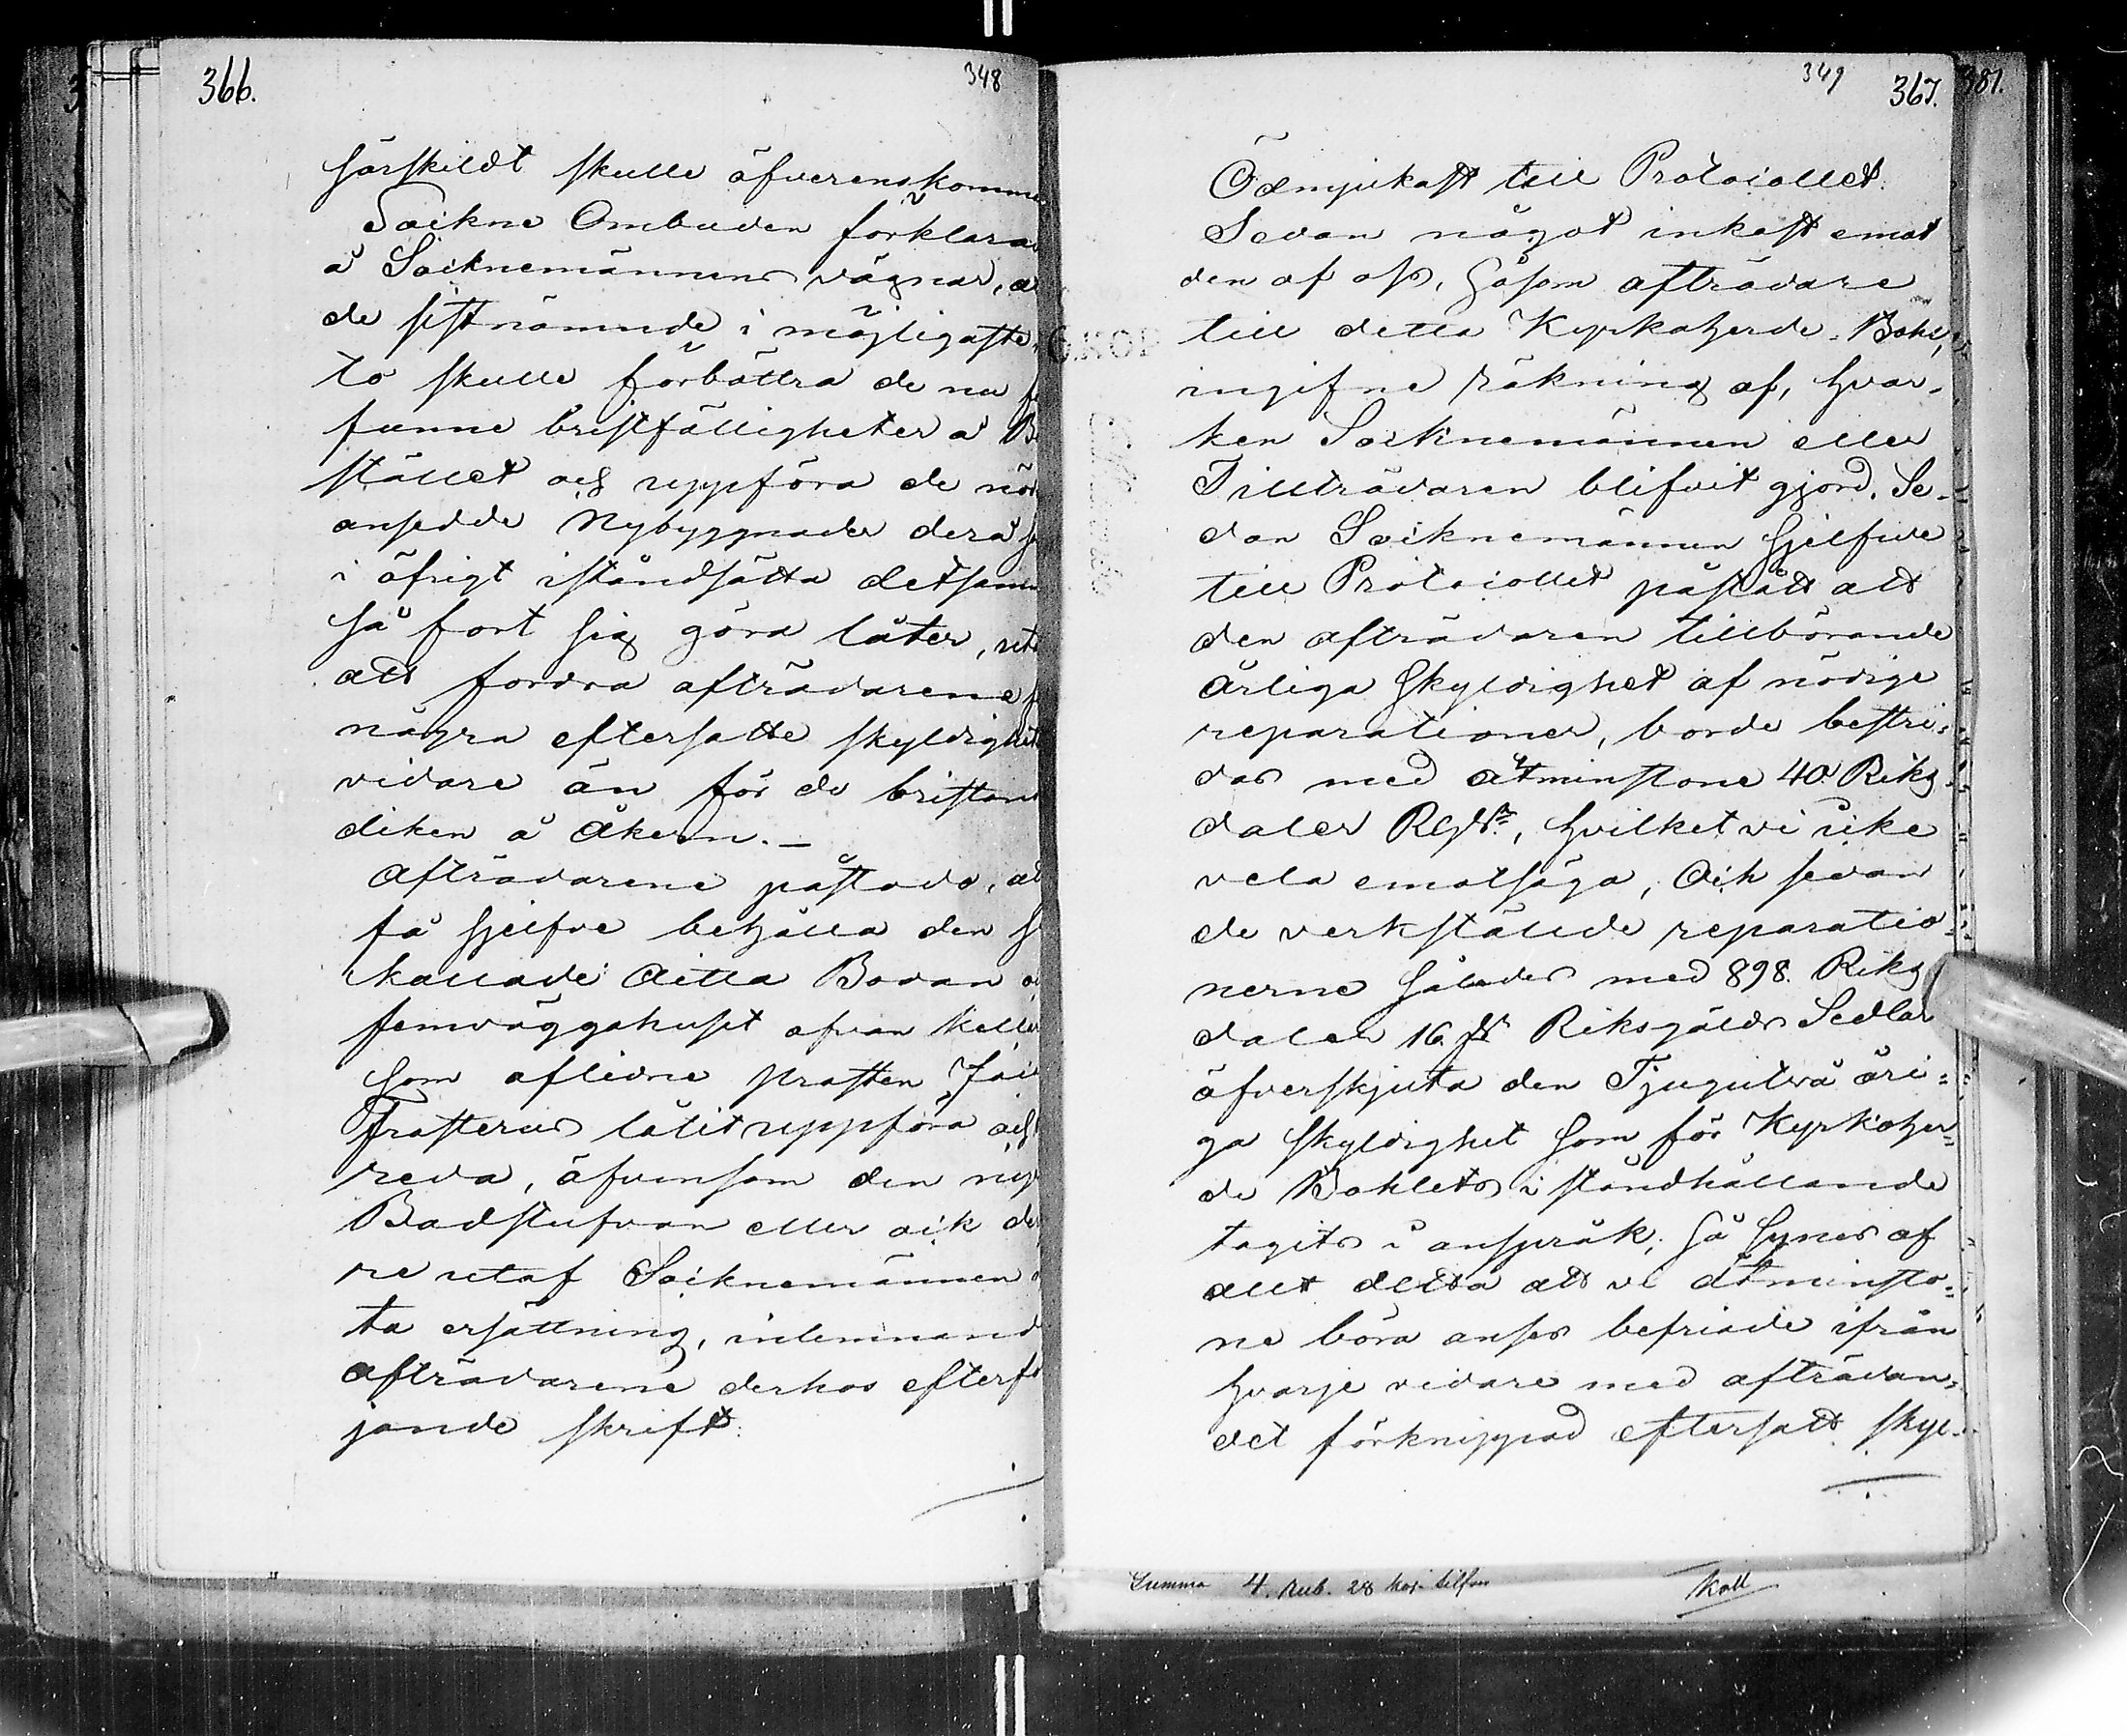 366.
348
särskildt skulle öfverenskomma
Sockne Ombuden förklara
å Socknemännens vägnar, a
de sistnämnde i möjligaste
to skulle förbättra de nu
funne bristfälligheter å B
stället och uppföra de nö
ansedde Nybyggnader derå
i öfrigt iståndsätta detsam
så fort sig göra låter, ut
att fordra afträdarene
några eftersatte skyldighet
vidare än för de bristan
diken å åkern._
Afträdarene påstodo, at
få sjelfve behålla den s
kallade Aitta Bodan o
femväggahuset ofvan kelle
som aflidne prosten Jac
Frosterus låtit uppföra och
reda, äfvensom den ny
Badstufvan eller ock de
re utaf Socknemännen
ta ersättning, inlemnand
afträdarene derhos efterfö
jande skrift:
349
367.
381.
Ödmjukast till Protocollet:
Sedan något inkast emot
den af oss, såsom afträdare
till detta Kyrkoherde-Bohl,
ingifne räkning af, hvar-
ken Socknemännen eller
Tillträdaren blifvit gjord. Se-
dan Socknemännen sjelfve
till Protocollet påstått att
den afträdaren tillhörande
årliga skyldighet af nödige
reparationer, borde bestri-
das med åtminstone 40. Riks
daler RGds, hvilket vi icke
vela emotsäga, Och sedan
de verkstälde reparatio-
nerne således med 898. Riks
daler 16. sk Riksgälds Sedlar
öfverskjuta den Tjugutvå åri-
ga skyldighet som för Kyrkoher-
de Bohlets i ståndhållande
tagits i anspråk; så synes af
allt detta att vi åtminsto-
ne böra anses befriade ifrån
hvarje vidare med afträdan-
det förknippad eftersatt skyl-
Summa 4. rub. 28 kop. silfver
Koll